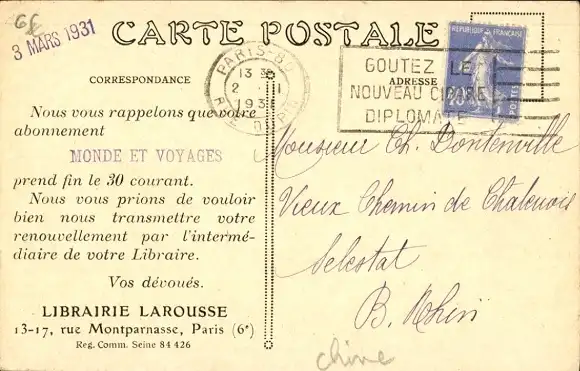 6f
3 MARS 1931
CARTE POSTALE
CORRESPONDANCE
ADRESSE
PARIS
13
2
193
GOUTEZ LE
NOUVEAU CIGARE
DIPLOMATE
REPUBLIQUE FRANÇAISE
POSTES
Nous vous rappelons que votre
abonnement
MONDE ET VOYAGES
prend fin le 30 courant.
Nous vous prions de vouloir
bien nous transmettre votre
renouvellement par l'intermé-
diaire de votre Libraire.
Vos dévoués.
LIBRAIRIE LAROUSSE
13-17, rue Montparnasse, Paris (6ᵉ)
Reg. Comm. Seine 84 426
Monsieur Ch. Dontenville
Vieux Chemin de Chatenois
Selestat
B. Rhin
chine